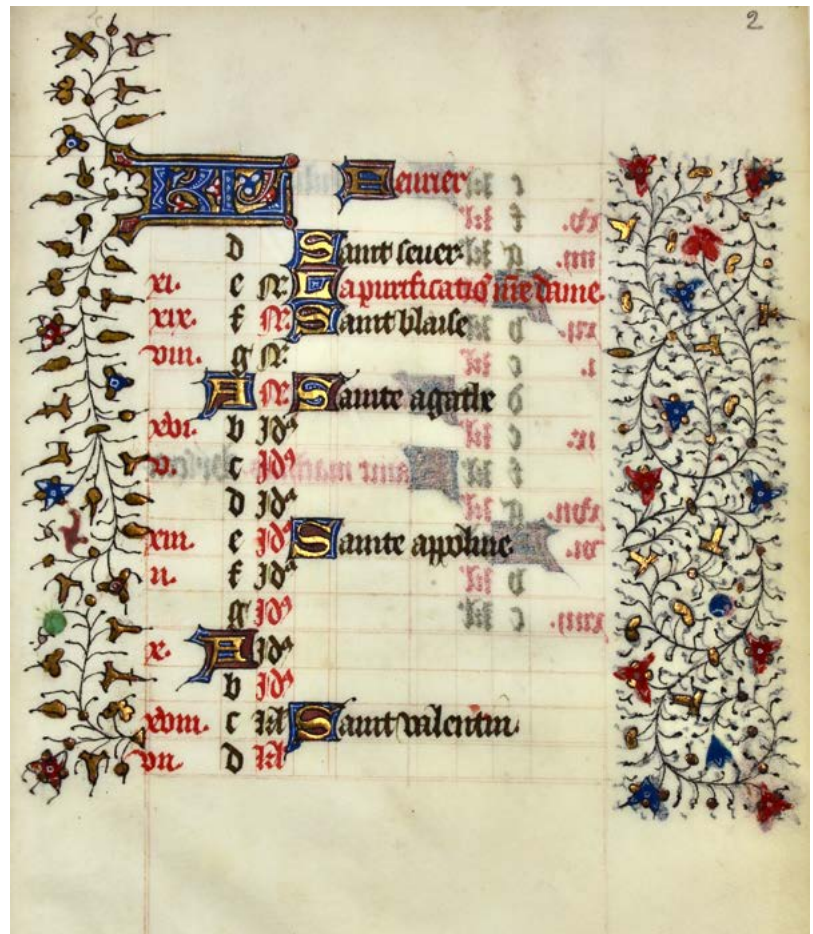 2
KL Feurier
d Saint seuer.
xi. e N. La purificatiō nr̄e dame.
xix. f N. Saint blaise
viii. g N.
A N. Sainte agathe
xvi. b Idꝰ
v. c Idꝰ
d Idꝰ
xiii. e Idꝰ Sainte appoline
ii. f Idꝰ
g Idꝰ
x. A Idꝰ
b Idꝰ
xviii. c kl Saint valentin.
vii. d kl